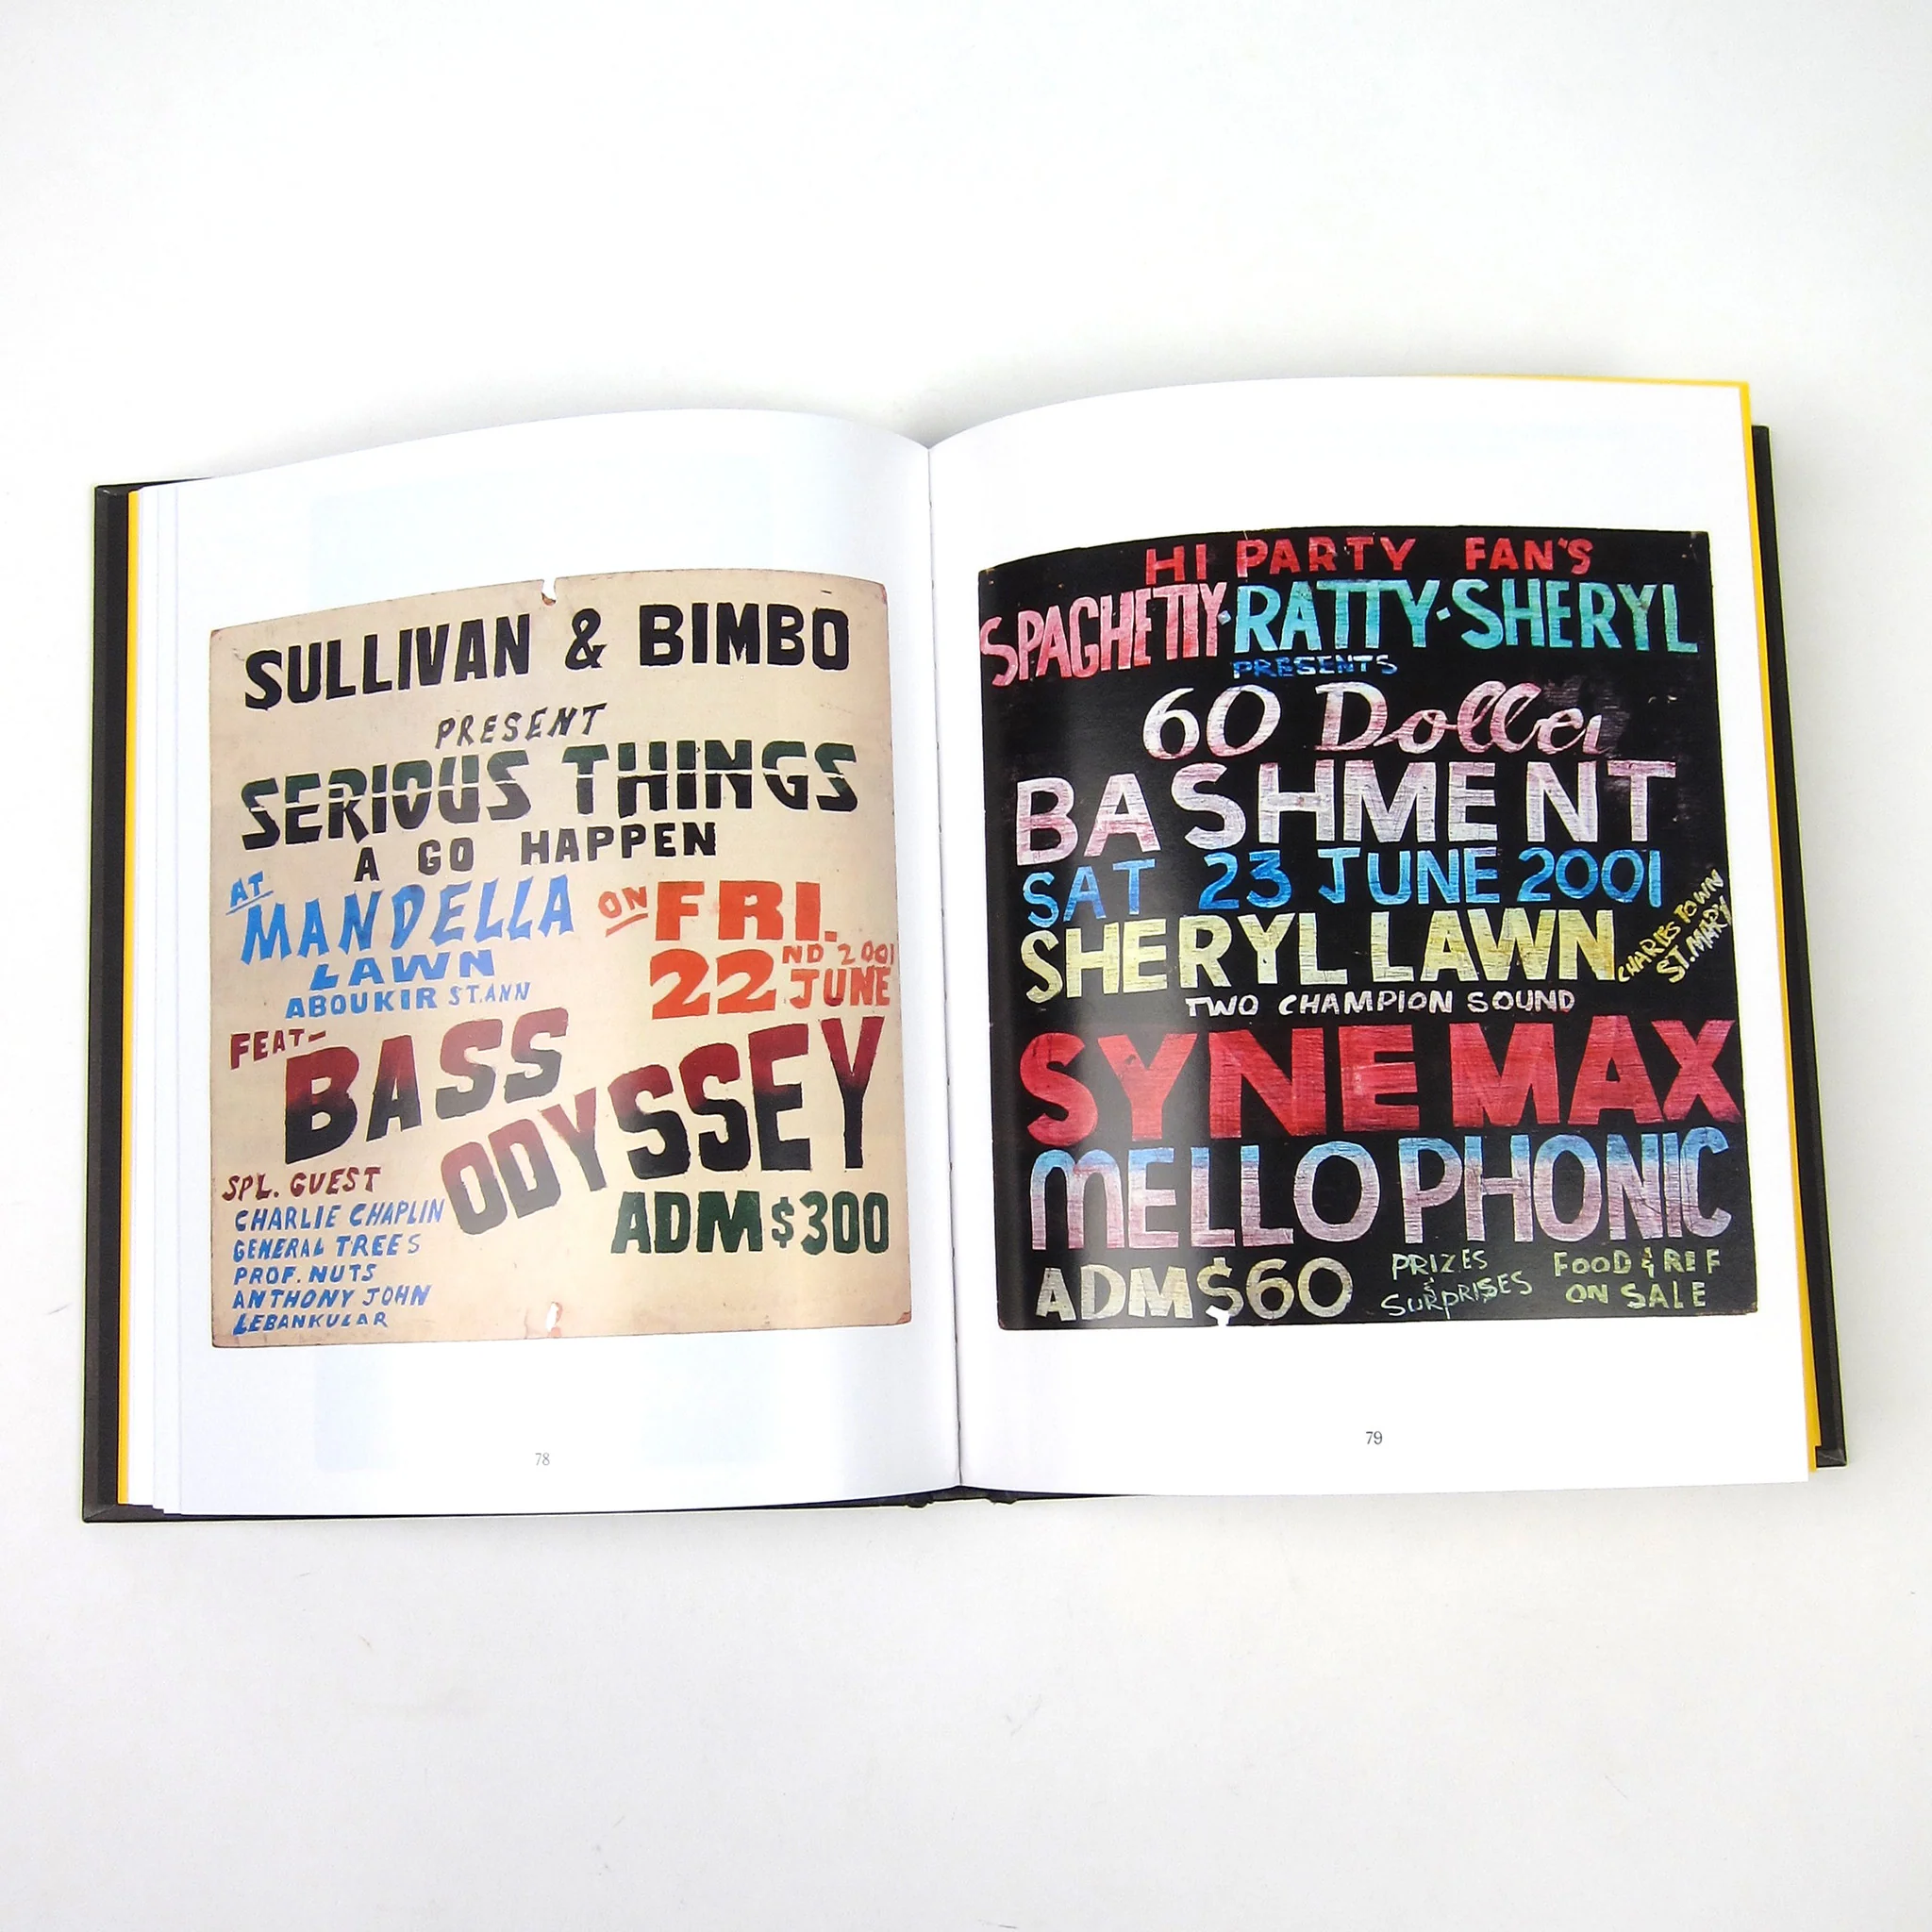 SULLIVAN & BIMBO
PRESENT
SERIOUS THINGS
A GO HAPPEN
AT
MANDELLA
LAWN
ABOUKIR ST.ANN
ON FRI.
22ND 2001
JUNE
FEAT-
BASS
ODYSSEY
SPL. GUEST
CHARLIE CHAPLIN
GENERAL TREES
PROF. NUTS
ANTHONY JOHN
LEBANKULAR
ADM $300
78
HI PARTY FAN'S
SPAGHETTY·RATTY·SHERYL
PRESENTS
60 Doller
BASHMENT
SAT 23 JUNE 2001
SHERYL LAWN
CHARLES TOWN
ST. MARY
TWO CHAMPION SOUND
SYNE MAX
MELLO PHONIC
ADM $60
PRIZES
&
SURPRISES
FOOD & REF
ON SALE
79